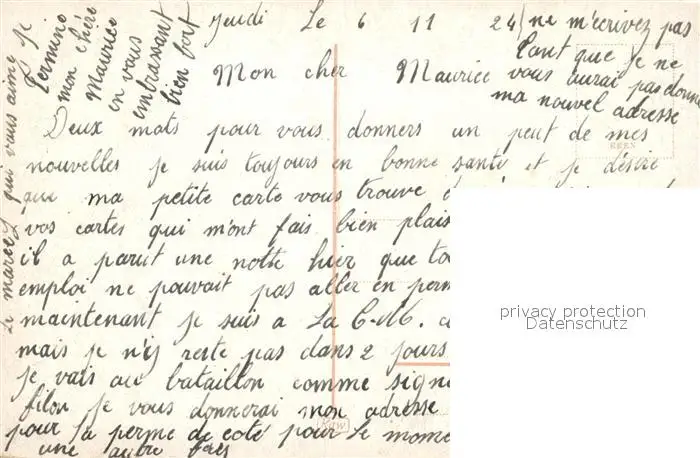 Jeudi Le 6 11 24
Mon cher Maurice
Deux mots pour vous donners un peut de mes
nouvelles je suis toujours en bonne santé et je désire
que ma petite carte vous trouve
vos cartes qui m'ont fais bien plais
il a parut une notte hier que
emploi ne pouvait pas aller en perm
maintenant je suis a La C.M.
mais je n'y reste pas dans 2 jours
je vais au bataillon comme signe
filou je vous donnerai mon adresse
pour la perme de coté pour le mome
une autre fois
Termine
mon chére
Maurice
en vous
embrassant
bien fort
qui vous aime
ne m'écrivez pas
tant que je ne
vous aurai pas donn
ma nouvel adresse
EREN
privacy protection
Datenschutz